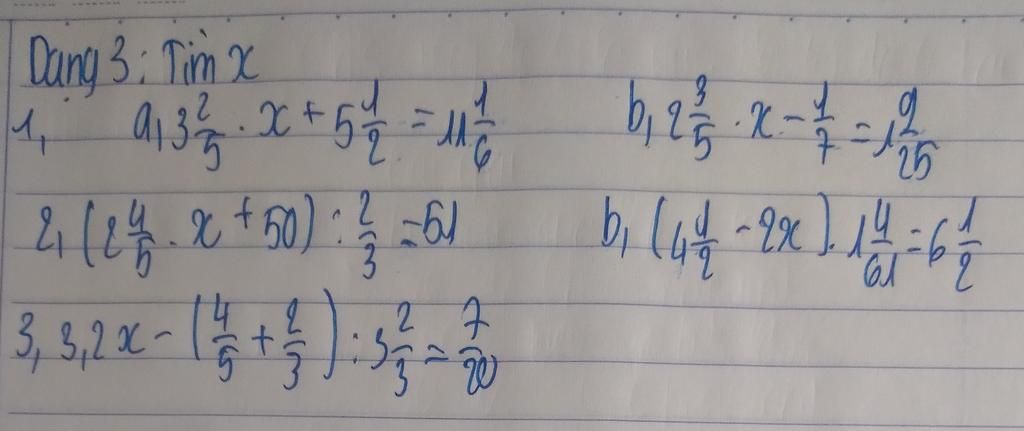 Dạng 3: Tìm x
1, a, 3 2/5 . x + 5 1/2 = 11 1/6 b, 2 3/5 . x - 1/7 = 1 9/25
2, (2 4/5 . x + 50) : 2/3 = 51 b, (4 1/2 - 2x) . 1 4/61 = 6 1/2
3, 3,2x - (4/5 + 2/3) : 3 2/3 = 7/20